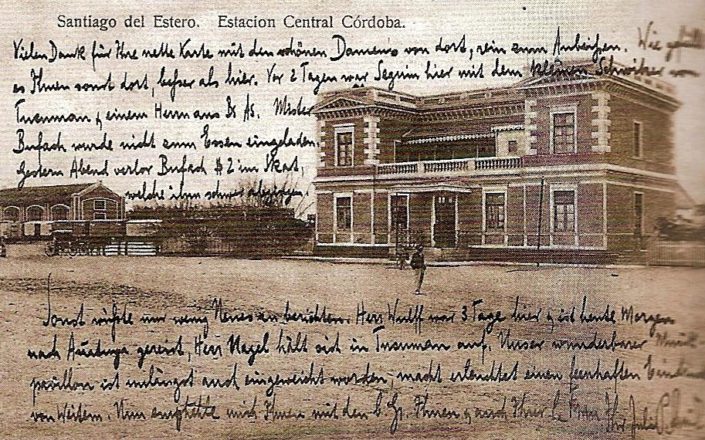 Santiago del Estero. Estacion Central Córdoba.
Vielen Dank für Ihre nette Karte mit den schönen Damens von dort, rein zum Anbeißen. Wie gefällt
es Ihnen sonst dort, besser als hier. Vor 2 Tagen war Seguin hier mit dem kleinen Schreiber von
Tucuman & einem Herrn aus Bs As. Mister
Bufach wurde nicht zum Essen eingeladen.
Gestern Abend verlor Bufach $2 im Skat,
welche ihm schwer
Sonst wüßte nur wenig Neues zu berichten. Herr Wulff war 3 Tage hier & ist heute Morgen
nach gereist, Herr Nagel hält sich in Tucuman auf. Unser wunderbarer
pavillon ist unlängst auch eingeweiht worden, macht erleuchtet einen feenhaften
von Weitem. Nun empfehle mich Ihnen mit den b. Gr. Ihnen & auch Ihrer l. Frau Ihr